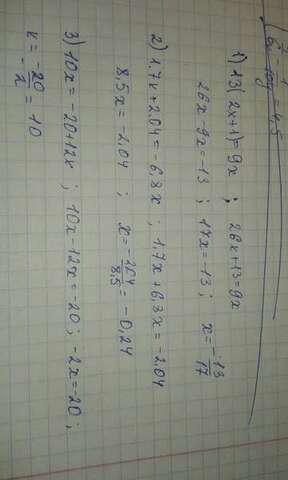 1) 13(2x+1)=9x ; 26x+13=9x
26x-9x=-13 ; 17x=-13 ; x=-13/17
2) 1.7x+2.04=-6,8x ; 1,7x+6,8x=-2.04
8,5x=-2,04 ; x=-2.04/8.5=-0,24
3) 10x=-20+12x ; 10x-12x=-20 ; -2x=-20 ;
x=-20/-2=10